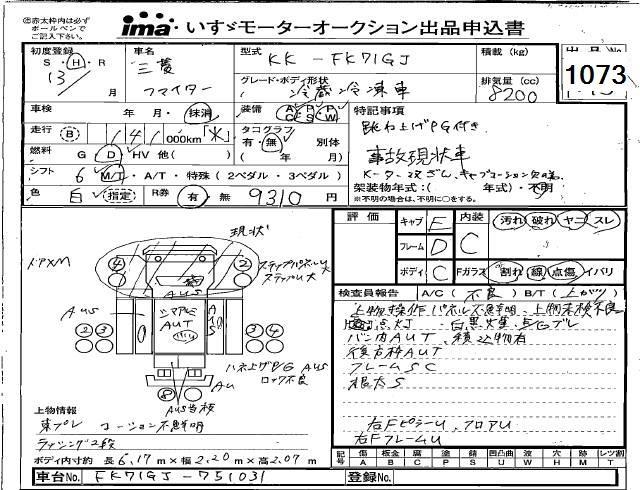 ②赤太枠内は必ず
ボールペンで
ご記入下さい。
ima いすゞモーターオークション出品申込書
初度登録
S・H・R
13
月
車名
三菱
ファイター
型式
KK - FK71GJ
グレード・ボディ形状
冷蔵冷凍車
積載 (kg)
排気量 (cc)
8200
出品No.
1073
車検
年・月・抹消
装備
特記事項
跳ね上げPG付き
事故現状車
走行
141
000km
タコグラフ
有・無
別体
(年 月)
燃料
G D HV 他( )
シフト
6 M/T・A/T・特殊 (2ペダル・3ペダル)
架装物年式:( 年式)・不明
※不明の場合は、不明に○をする。
色
白 指定
R券
有・無 9310円
評価
キャブ E
内装 C
汚れ 破れ ヤニ スレ
フレーム D
ボディ C
Fガラス
割れ 線 点傷 イバリ
検査員報告
A/C ( 不良 ) B/T ( 上がり )
バン内AUT、積込物有
後方枠AUT
フレームSC
根太S
右FピラーU、フロアU
右FフレームU
現状
ドアXM
④
②
ステップパネルU大
ステップU大
AUS
AUS
AUT
②③
③②
ハネ上げPG AUS
ロック不良
AU
⑧
上物情報
東プレ コーション不鮮明
ラッシング2段
ボディ内寸約 長6.17m×幅2.20m×高2.07m
記号
傷 板金 腐 塗 錆 凹凸曲 波 穴 跡 レツ割
A B C P S U W H M T
車台No. FK71GJ-751031
登録No.